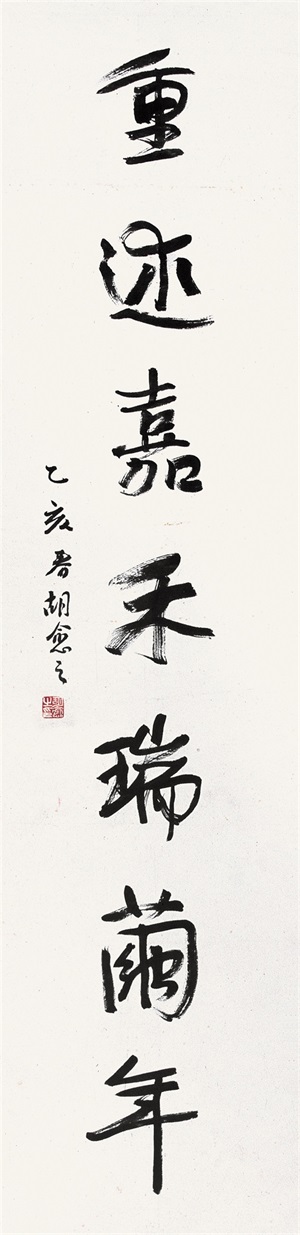 重述嘉禾瑞茧年
乙亥春胡愈之